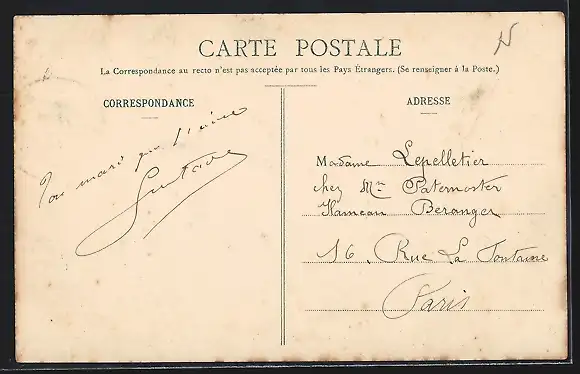 CARTE POSTALE
La Correspondance au recto n'est pas acceptée par tous les Pays Étrangers. (Se renseigner à la Poste.)
CORRESPONDANCE
Ton mari qui t'aime
Gustave
ADRESSE
Madame Lepelletier
chez Mr Paternoster
Hameau Beranger
16, Rue La Fontaine
Paris